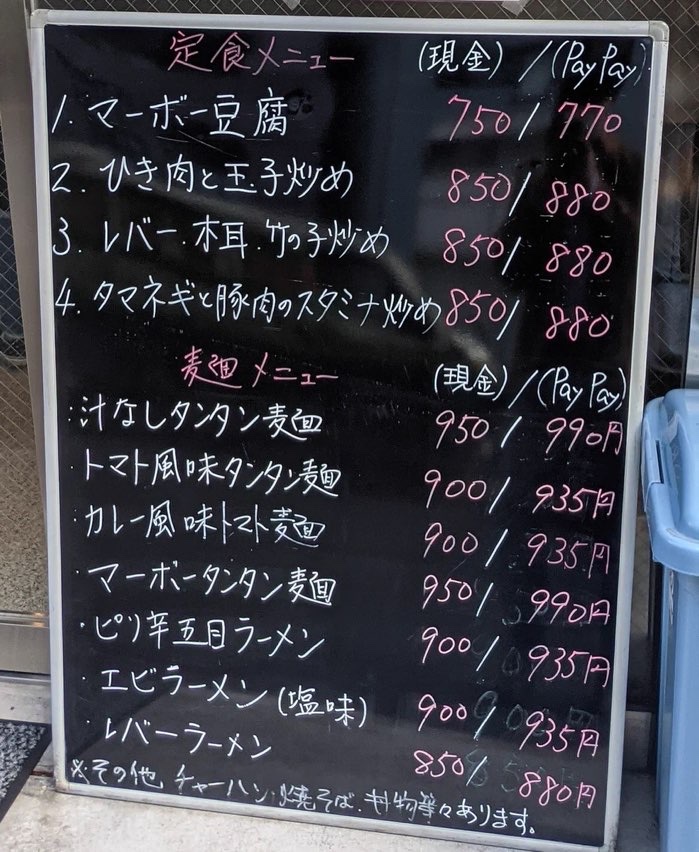 定食メニュー (現金) / (PayPay)
1. マーボー豆腐 750 / 770
2. ひき肉と玉子炒め 850 / 880
3. レバー.木耳.竹の子炒め 850 / 880
4. タマネギと豚肉のスタミナ炒め 850 / 880
麦麺メニュー (現金) / (PayPay)
・汁なしタンタン麺 950 / 990円
・トマト風味タンタン麺 900 / 935円
・カレー風味トマト麺 900 / 935円
・マーボータンタン麺 950 / 990円
・ピリ辛五目ラーメン 900 / 935円
・エビラーメン (塩味) 900 / 935円
・レバーラーメン 850 / 880円
※その他、チャーハン.焼そば.丼物等々あります。